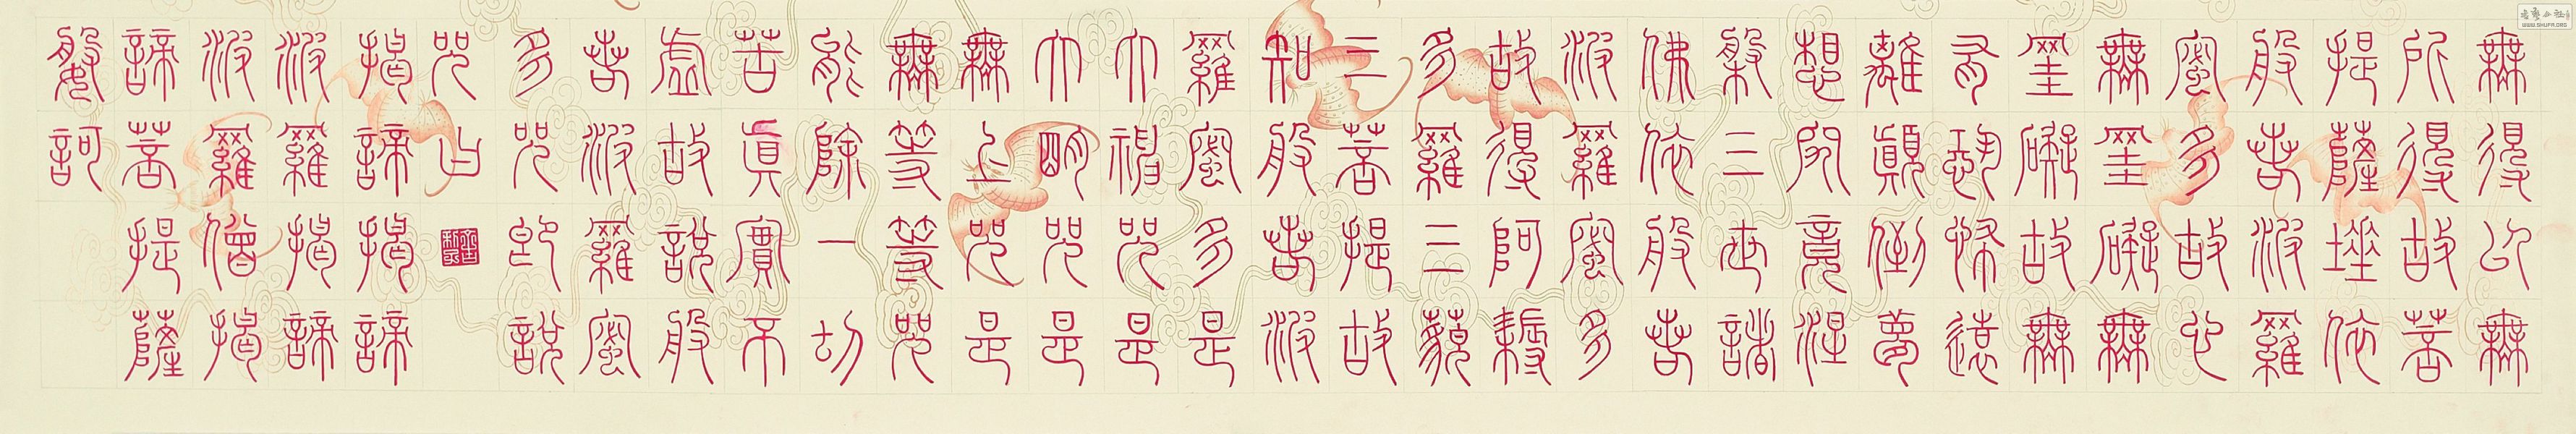 無得以無
所得故菩
提薩埵依
般若波羅
蜜多故心
無罣礙無
罣礙故無
有恐怖遠
離顛倒夢
想究竟涅
槃三世諸
佛依般若
波羅蜜多
故得阿耨
多羅三藐
三菩提故
知般若波
羅蜜多是
大神咒是
大明咒是
無上咒是
無等等咒
能除一切
苦眞實不
虛故說般
若波羅蜜
多咒即說
咒曰
揭諦揭諦
波羅揭諦
波羅僧揭
諦菩提薩
媻訶
WWW.SHUFA.ORG